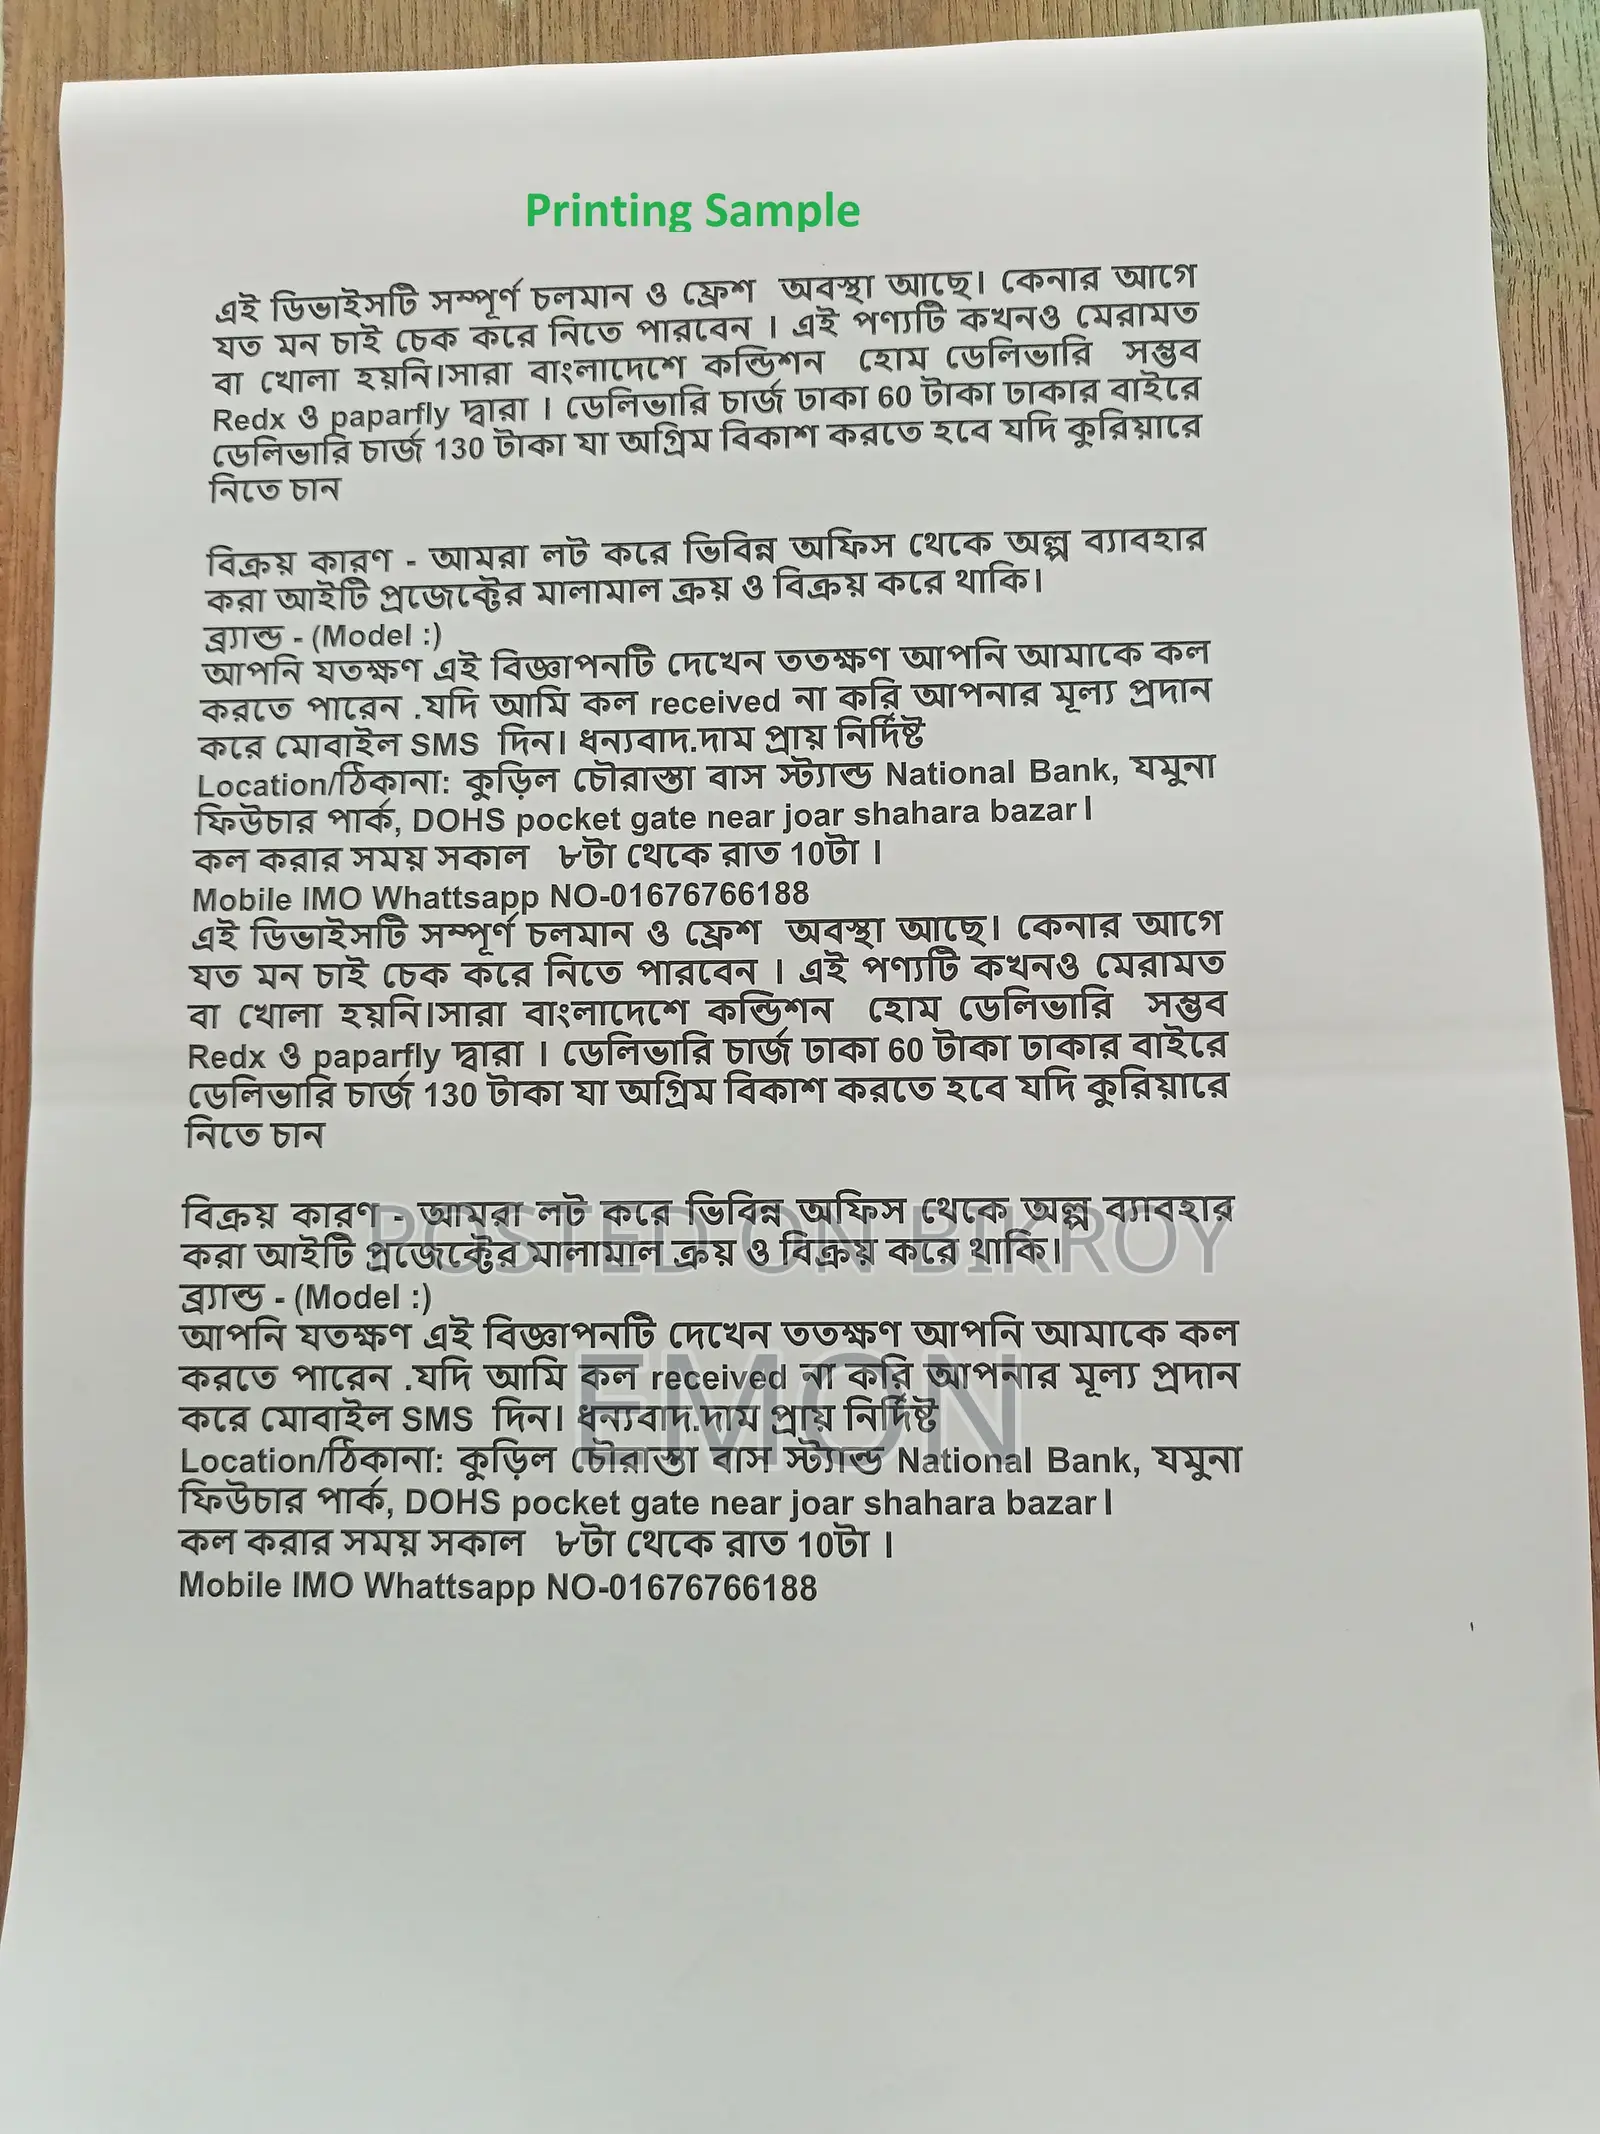 Printing Sample
এই ডিভাইসটি সম্পূর্ণ চলমান ও ফ্রেশ অবস্থা আছে। কেনার আগে
যত মন চাই চেক করে নিতে পারবেন । এই পণ্যটি কখনও মেরামত
বা খোলা হয়নি।সারা বাংলাদেশে কন্ডিশন হোম ডেলিভারি সম্ভব
Redx ও paparfly দ্বারা । ডেলিভারি চার্জ ঢাকা 60 টাকা ঢাকার বাইরে
ডেলিভারি চার্জ 130 টাকা যা অগ্রিম বিকাশ করতে হবে যদি কুরিয়ারে
নিতে চান
বিক্রয় কারণ - আমরা লট করে ভিবিন্ন অফিস থেকে অল্প ব্যাবহার
করা আইটি প্রজেক্টের মালামাল ক্রয় ও বিক্রয় করে থাকি।
ব্র্যান্ড - (Model :)
আপনি যতক্ষণ এই বিজ্ঞাপনটি দেখেন ততক্ষণ আপনি আমাকে কল
করতে পারেন .যদি আমি কল received না করি আপনার মূল্য প্রদান
করে মোবাইল SMS দিন। ধন্যবাদ.দাম প্রায় নির্দিষ্ট
Location/ঠিকানা: কুড়িল চৌরাস্তা বাস স্ট্যান্ড National Bank, যমুনা
ফিউচার পার্ক, DOHS pocket gate near joar shahara bazar।
কল করার সময় সকাল ৮টা থেকে রাত 10টা ।
Mobile IMO Whattsapp NO-01676766188
এই ডিভাইসটি সম্পূর্ণ চলমান ও ফ্রেশ অবস্থা আছে। কেনার আগে
যত মন চাই চেক করে নিতে পারবেন । এই পণ্যটি কখনও মেরামত
বা খোলা হয়নি।সারা বাংলাদেশে কন্ডিশন হোম ডেলিভারি সম্ভব
Redx ও paparfly দ্বারা । ডেলিভারি চার্জ ঢাকা 60 টাকা ঢাকার বাইরে
ডেলিভারি চার্জ 130 টাকা যা অগ্রিম বিকাশ করতে হবে যদি কুরিয়ারে
নিতে চান
বিক্রয় কারণ - আমরা লট করে ভিবিন্ন অফিস থেকে অল্প ব্যাবহার
POSTED ON BIKROY
করা আইটি প্রজেক্টের মালামাল ক্রয় ও বিক্রয় করে থাকি।
ব্র্যান্ড - (Model :)
আপনি যতক্ষণ এই বিজ্ঞাপনটি দেখেন ততক্ষণ আপনি আমাকে কল
করতে পারেন .যদি আমি কল received না করি আপনার মূল্য প্রদান
EMON
করে মোবাইল SMS দিন। ধন্যবাদ.দাম প্রায় নির্দিষ্ট
Location/ঠিকানা: কুড়িল চৌরাস্তা বাস স্ট্যান্ড National Bank, যমুনা
ফিউচার পার্ক, DOHS pocket gate near joar shahara bazar।
কল করার সময় সকাল ৮টা থেকে রাত 10টা ।
Mobile IMO Whattsapp NO-01676766188